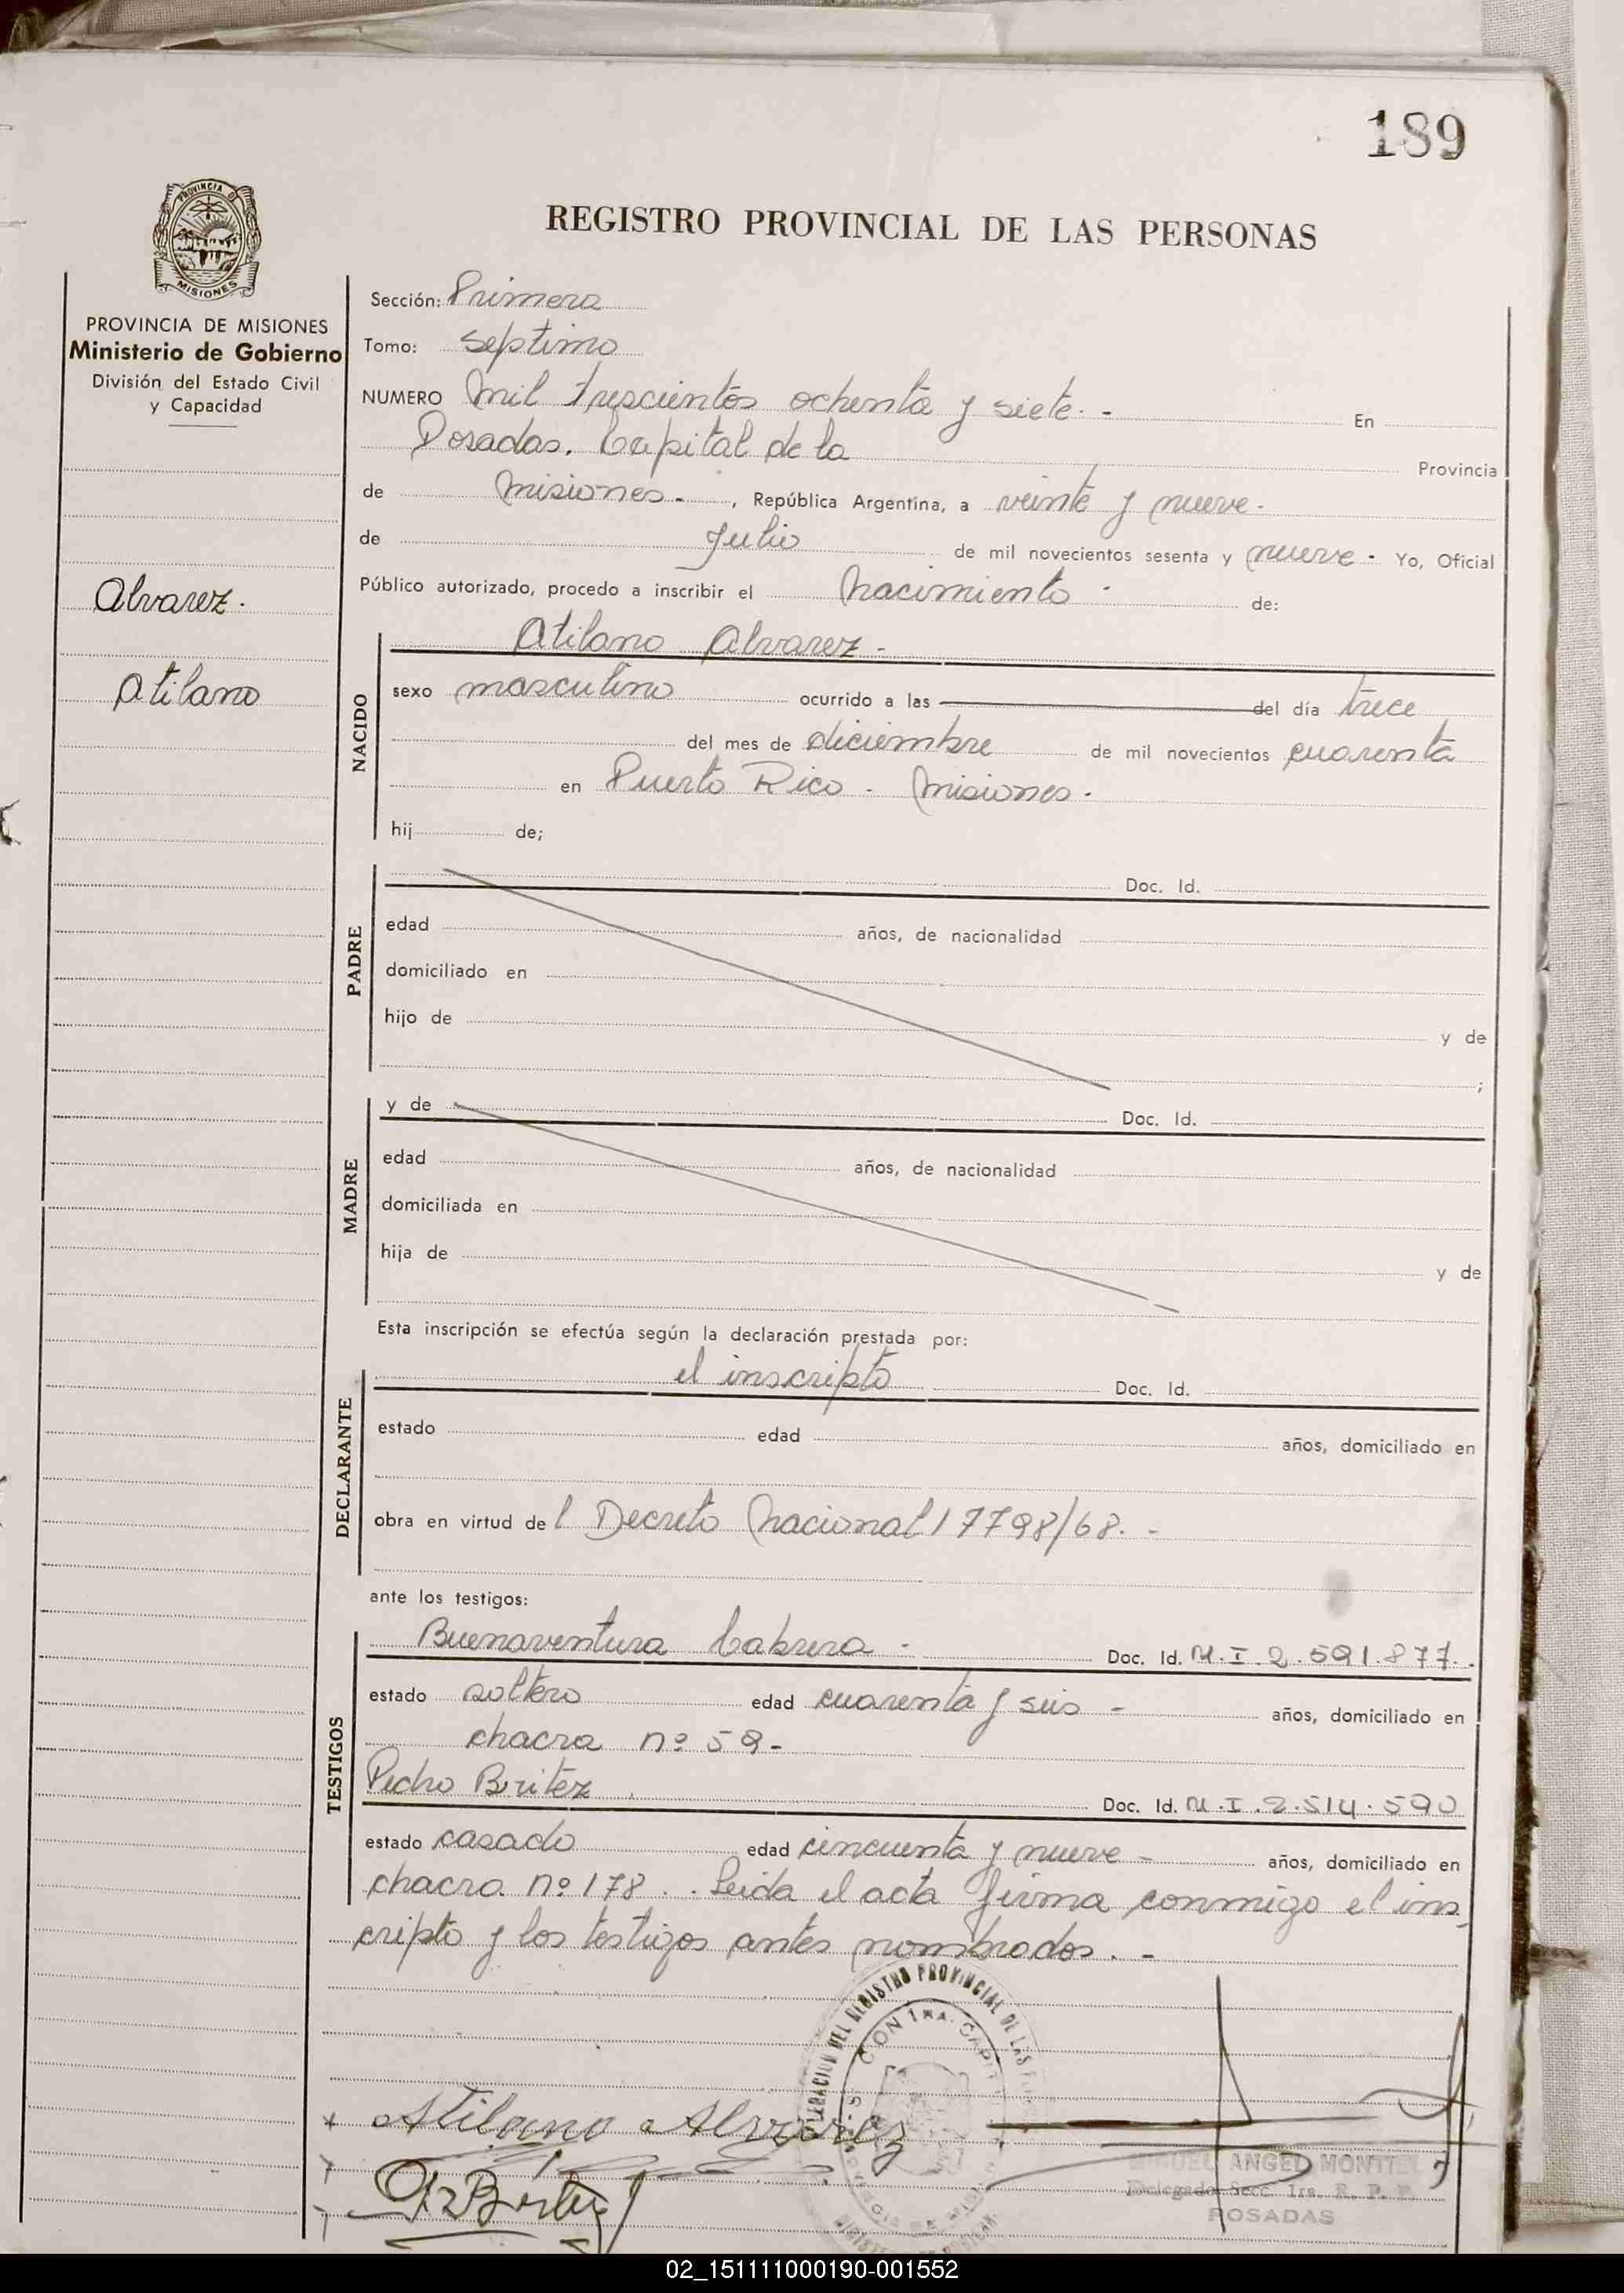 189
PROVINCIA DE
MISIONES
REGISTRO PROVINCIAL DE LAS PERSONAS
PROVINCIA DE MISIONES
Ministerio de Gobierno
División del Estado Civil
y Capacidad
Alvarez.
Atilano
Sección: Primera
Tomo: Septimo
NUMERO Mil trescientos ochenta y siete. - En
Posadas. Capital de la Provincia
de Misiones. - , República Argentina, a veinte y nueve -
de Julio de mil novecientos sesenta y nueve - Yo, Oficial
Público autorizado, procedo a inscribir el Nacimiento - de:
NACIDO
Atilano Alvarez -
sexo masculino ocurrido a las del día trece
del mes de diciembre de mil novecientos cuarenta
en Puerto Rico - Misiones -
hij de;
PADRE
Doc. Id.
edad años, de nacionalidad
domiciliado en
hijo de y de
;
MADRE
y de Doc. Id.
edad años, de nacionalidad
domiciliada en
hija de y de
Esta inscripción se efectúa según la declaración prestada por:
DECLARANTE
el inscripto Doc. Id.
estado edad años, domiciliado en
obra en virtud del Decreto Nacional 17798/68. -
ante los testigos:
TESTIGOS
Buenaventura Cabrera - Doc. Id. M.I. 2.591.877.
estado soltero edad cuarenta y seis - años, domiciliado en
chacra nº 59 -
Pedro Britez Doc. Id. M.I. 2.514.590
estado casado edad cincuenta y nueve - años, domiciliado en
chacra nº 178 . . Leida el acta firma conmigo el ins_
cripto y los testigos antes nombrados. -
DEL REGISTRO PROVINCIAL DE LAS
Atilano Alvarez
MIGUEL ANGEL MONTIEL
Delegado Secc. 1ra. R. P. P.
POSADAS
02_151111000190-001552